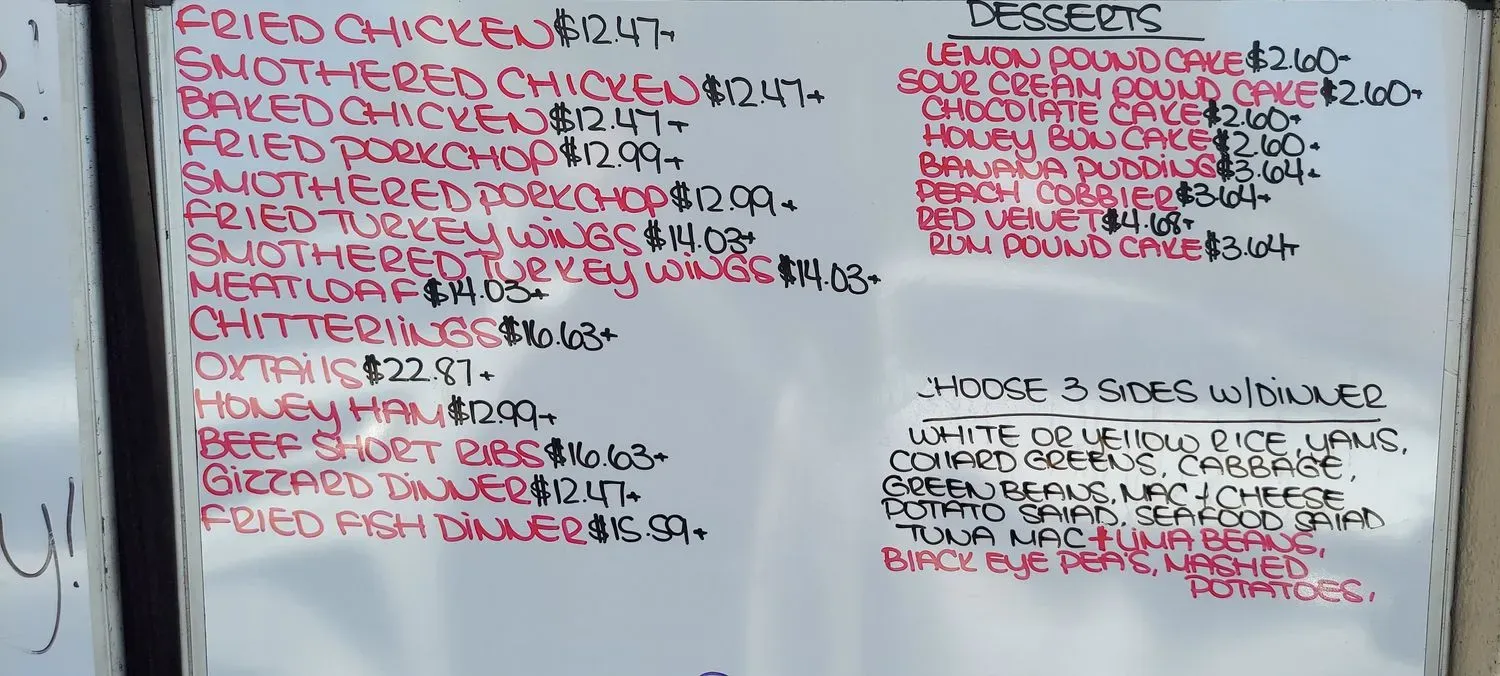 FRIED CHICKEN $12.47+
SMOTHERED CHICKEN $12.47+
BAKED CHICKEN $12.47+
FRIED PORKCHOP $12.99+
SMOTHERED PORKCHOP $12.99+
FRIED TURKEY WiNGS $14.03+
SMOTHERED TURKEY WiNGS $14.03+
MEATLOAF $14.03+
CHITTERliNGS $16.63+
OXTAilS $22.87+
HONEY HAM $12.99+
BEEF SHORT RIBS $16.63+
GiZZARD DiNNER $12.47+
FRIED FISH DiNNER $15.59+
DESSERTS
LEMON POUND CAKE $2.60+
SOUR CREAM POUND CAKE $2.60+
CHOCOlATE CAKE $2.60+
HONEY BUN CAKE $2.60+
BANANA PUDDiNG $3.64+
PEACH COBBlER $3.64+
RED VElVET $4.68+
RUM POUND CAKE $3.64+
CHOOSE 3 SIDES W/DiNNER
WHITE OR YEllOW RICE, YAMS,
COllARD GREENS, CABBAGE,
GREEN BEANS, MAC + CHEESE
POTATO SAlAD, SEAFOOD SAlAD
TUNA MAC + LIMA BEANS,
BlACK EYE PEA'S, MASHED
POTATOES,